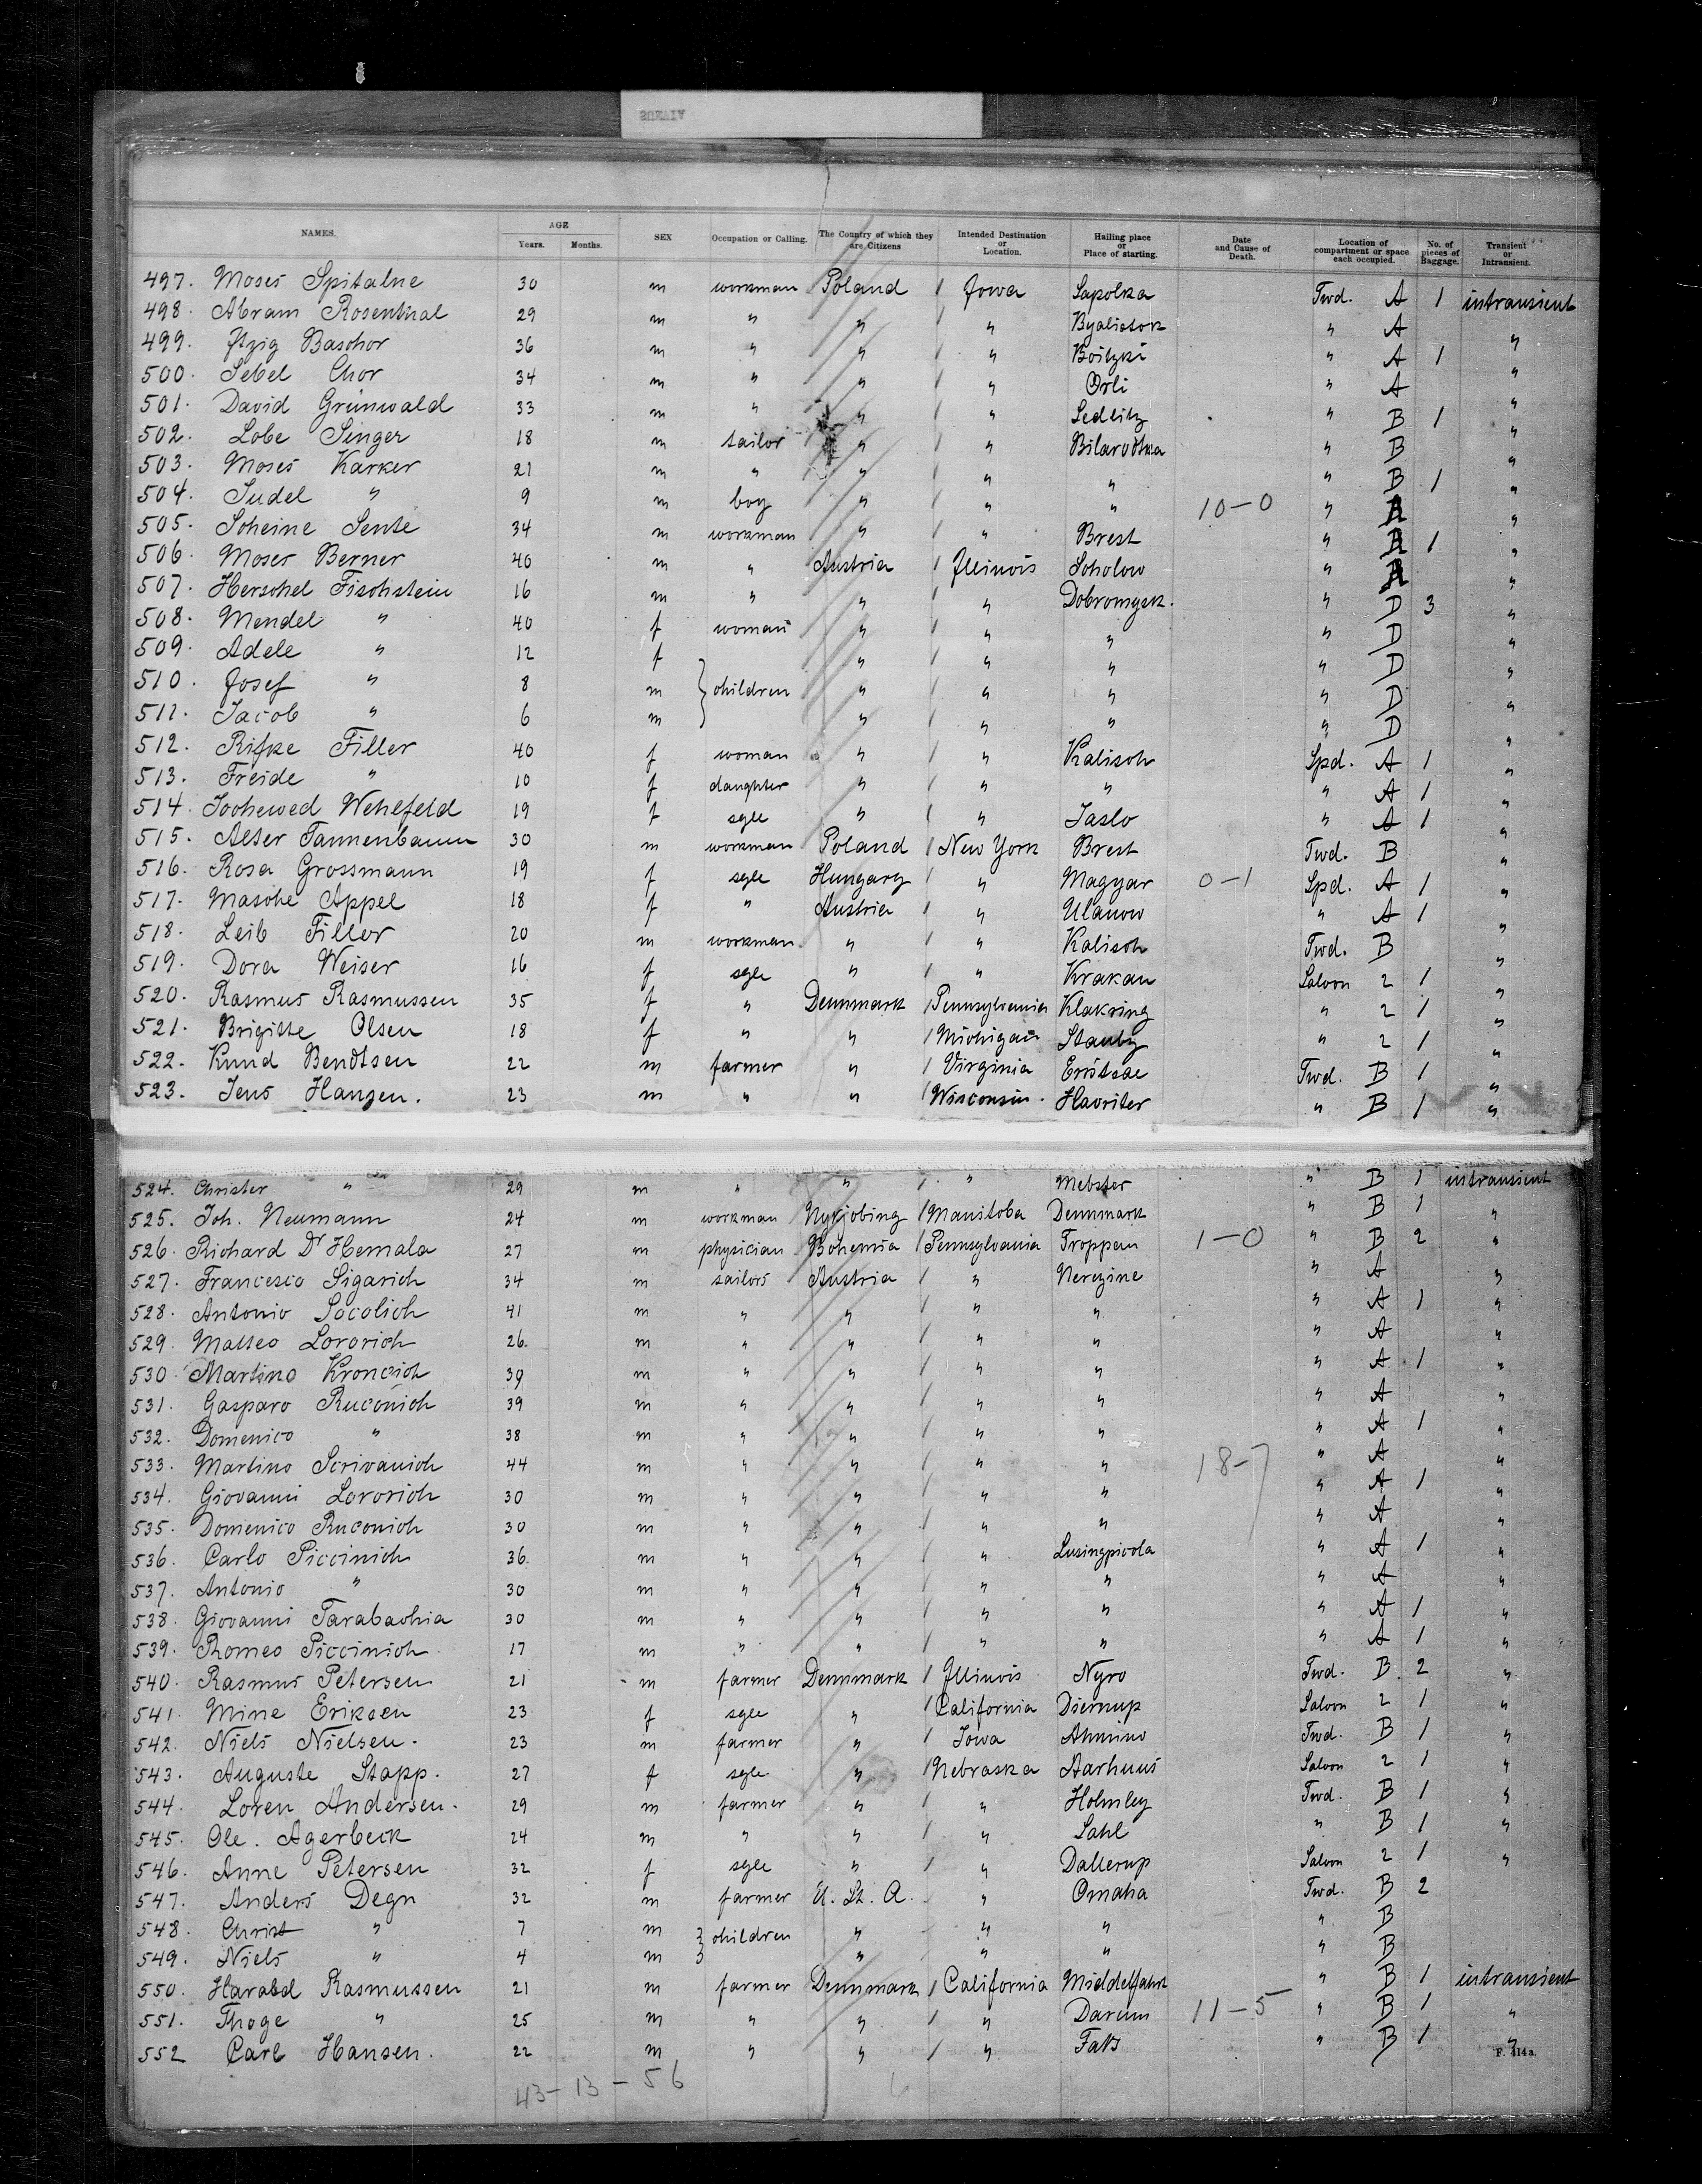 NAMES. AGE Years. Months. SEX Occupation or Calling. The Country of which they are Citizens Intended Destination or Location. Hailing place or Place of starting. Date and Cause of Death. Location of compartment or space each occupied. No. of pieces of Baggage. Transient or Intransient.
497. Moses Spitalne 30 m workman Poland / Iowa Sapolka Twd. A 1 intransient
498. Abram Rosenthal 29 m " " / " Byalistok " A "
499. Itzig Baschor 36 m " " / " Boitzki " A 1 "
500. Sebel Chor 34 m " " / " Orli " A "
501. David Grünwald 33 m " " / " Sedlitz " B 1 "
502. Lobe Singer 18 m tailor " / " Bilarodka " B "
503. Moses Karker 21 m " " / " " " B 1 "
504. Judel " 9 m boy " / " " 10-0 " "
505. Scheine Sente 34 m workman " / " Brest " 1 "
506. Moser Berner 40 m " Austria / Illinois Soholow " "
507. Herschel Fischstein 16 m " " / " Dobromysk. " D 3 "
508. Mendel " 40 f woman " / " " " D "
509. Adele " 12 f " / " " " D "
510. Josef " 8 m } children " / " " " D "
511. Jacob " 6 m " / " " " D "
512. Rifke Filler 40 f woman " / " Kalisch Spd. A 1 "
513. Freide " 10 f daughter " / " " " A 1 "
514. Jochewed Wehlfeld 19 f sgle " / " Jaslo " A 1 "
515. Alter Tannenbaum 30 m workman Poland / New York Brest Twd. B "
516. Rosa Grossmann 19 f sgle Hungary / " Magyar 0-1 Spd. A 1 "
517. Masche Appel 18 f " Austria / " Ulanow " A 1 "
518. Leib Filler 20 m workman " / " Kalisch Twd. B "
519. Dora Weiser 16 f sgle " / " Krakau Saloon 2 1 "
520. Rasmus Rasmussen 35 f " Dennmark / Pennsylvania Klakring " 2 1 "
521. Brigitte Olsen 18 f " " / Michigan Stauby " 2 1 "
522. Knud Bendtsen 22 m farmer " / Virginia Erritsae Twd. B 1 "
523. Jens Hangen. 23 m " " / Wisconsin. Havriter " B 1 "
524. Christer " 29 m " " / " Mebster " B 1 intransient
525. Joh. Neumann 24 m workman Nykjobing / Manitoba Dennmark " B 1 "
526. Richard Dr Hemala 27 m physician Bohemia / Pennsylvania Troppau 1-0 " B 2 "
527. Francesco Sigarich 34 m sailors Austria / " Nerezine " A "
528. Antonio Socolich 41 m " " / " " " A 1 "
529. Matteo Lororich 26. m " " / " " " A "
530. Martino Kroncich 39 m " " / " " " A 1 "
531. Gasparo Ruconich 39 m " " / " " " A "
532. Domenico " 38 m " " / " " " A 1 "
533. Martino Scrivanich 44 m " " / " " 18-7 " A "
534. Giovanni Lororich 30 m " " / " " " A 1 "
535. Domenico Ruconich 30 m " " / " " " A "
536. Carlo Piccinich 36. m " " / " Lusingpicola " A 1 "
537. Antonio " 30 m " " / " " " A "
538. Giovanni Tarabachia 30 m " " / " " " A 1 "
539. Romeo Piccinich 17 m " " / " " " A 1 "
540. Rasmus Petersen 21 m farmer Dennmark / Illinois Nyro Twd. B 2 "
541. Mine Eriksen 23 f sgle " / California Diernup Saloon 2 1 "
542. Niels Nielsen. 23 m farmer " / Iowa Ahmino Twd. B 1 "
543. Auguste Stapp. 27 f sgle " / Nebraska Aarhuus Saloon 2 1 "
544. Loren Andersen. 29 m farmer " / " Holmley Twd. B 1 "
545. Ole. Agerbeck 24 m " " / " Sahl " B 1 "
546. Anne Petersen 32 f sgle " / " Dallerup Saloon 2 1 "
547. Anders Degn 32 m farmer U. St. A. " Omaha Twd. B 2
548. Christ " 7 m } children " " " " B
549. Niels " 4 m " " " " B
550. Harald Rasmussen 21 m farmer Dennmark / California Middelfahrt " B 1 intransient
551. Thoge " 25 m " " / " Darum 11-5 " B 1 "
552 Carl Hansen. 22 m " " / " " B 1 "
F. 414a.
43-13-56